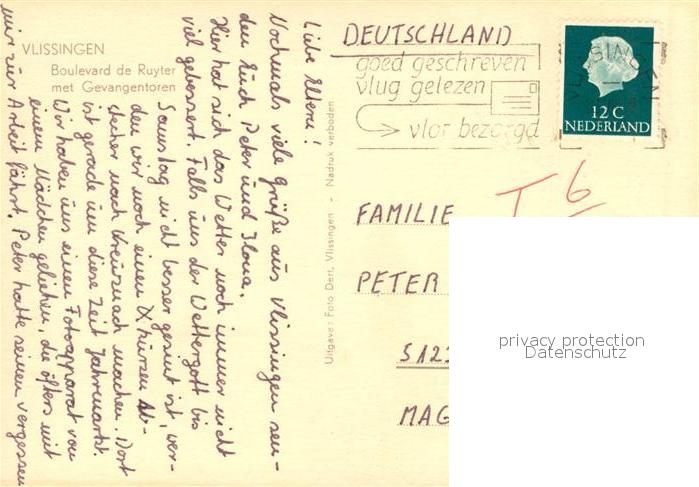 VLISSINGEN
Boulevard de Ruyter
met Gevangentoren
Liebe Eltern!
Nochmals viele Grüße aus Vlissingen sen-
den Euch Peter und Ilona.
Hier hat sich das Wetter noch immer nicht
viel gebessert. Falls uns der Wettergott bis
Samstag nicht besser gesinnt ist, wer-
den wir noch einen kurzen Ab-
stecher nach Kreuznach machen. Dort
ist gerade um diese Zeit Jahrmarkt.
Wir haben uns einen Fotoapparat von
einem Mädchen geliehen, die öfters mit
mir zur Arbeit fährt. Peter hatte seinen vergessen
Uitgave: Foto Dert, Vlissingen - Nadruk verboden
DEUTSCHLAND
goed geschreven
vlug gelezen
vlot bezorgd
VLISSINGEN
12 C
NEDERLAND
T 6
FAMILIE
PETER
512
MAG
privacy protection
Datenschutz